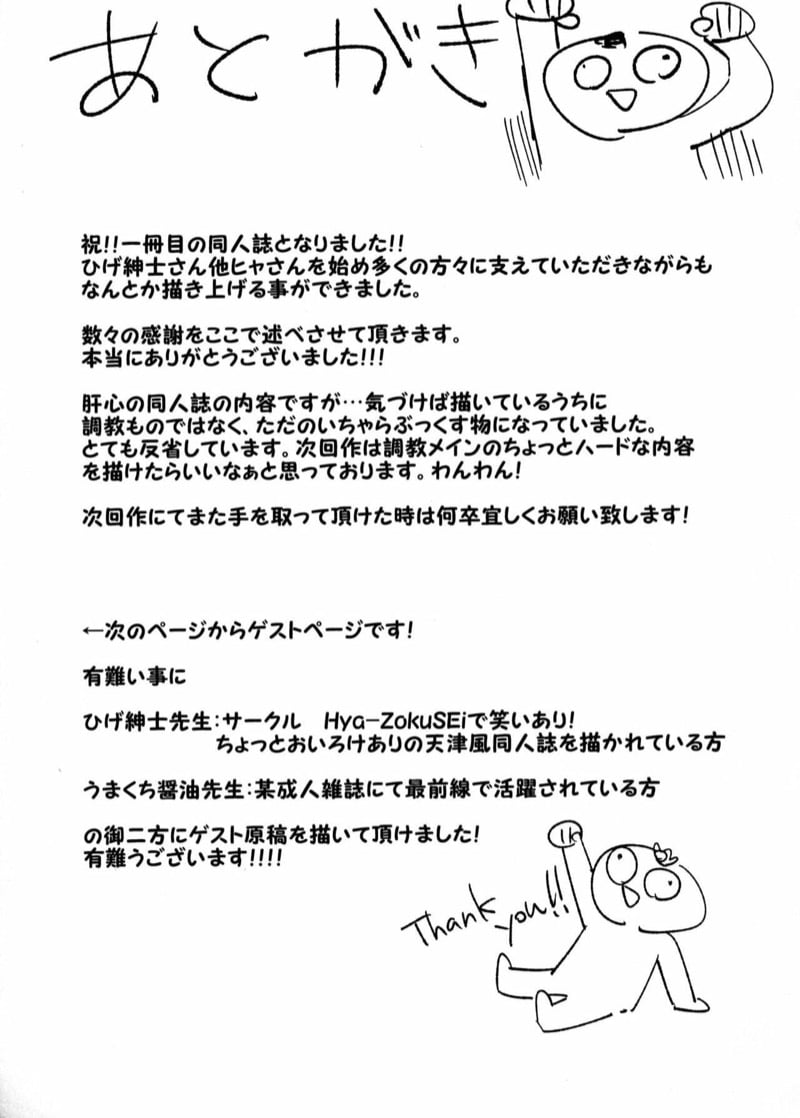 あとがき
祝!!一冊目の同人誌となりました!!
ひげ紳士さん他ヒャさんを始め多くの方々に支えていただきながらも
なんとか描き上げる事ができました。
数々の感謝をここで述べさせて頂きます。
本当にありがとうございました!!!
肝心の同人誌の内容ですが…気づけば描いているうちに
調教ものではなく、ただのいちゃらぶっくす物になっていました。
とても反省しています。次回作は調教メインのちょっとハードな内容
を描けたらいいなぁと思っております。わんわん!
次回作にてまた手を取って頂けた時は何卒宜しくお願い致します!
←次のページからゲストページです!
有難い事に
ひげ紳士先生:サークル Hya-ZokuSEiで笑いあり!
ちょっとおいろけありの天津風同人誌を描かれている方
うまくち醤油先生:某成人雑誌にて最前線で活躍されている方
の御二方にゲスト原稿を描いて頂けました!
有難うございます!!!!
Thank
you!!